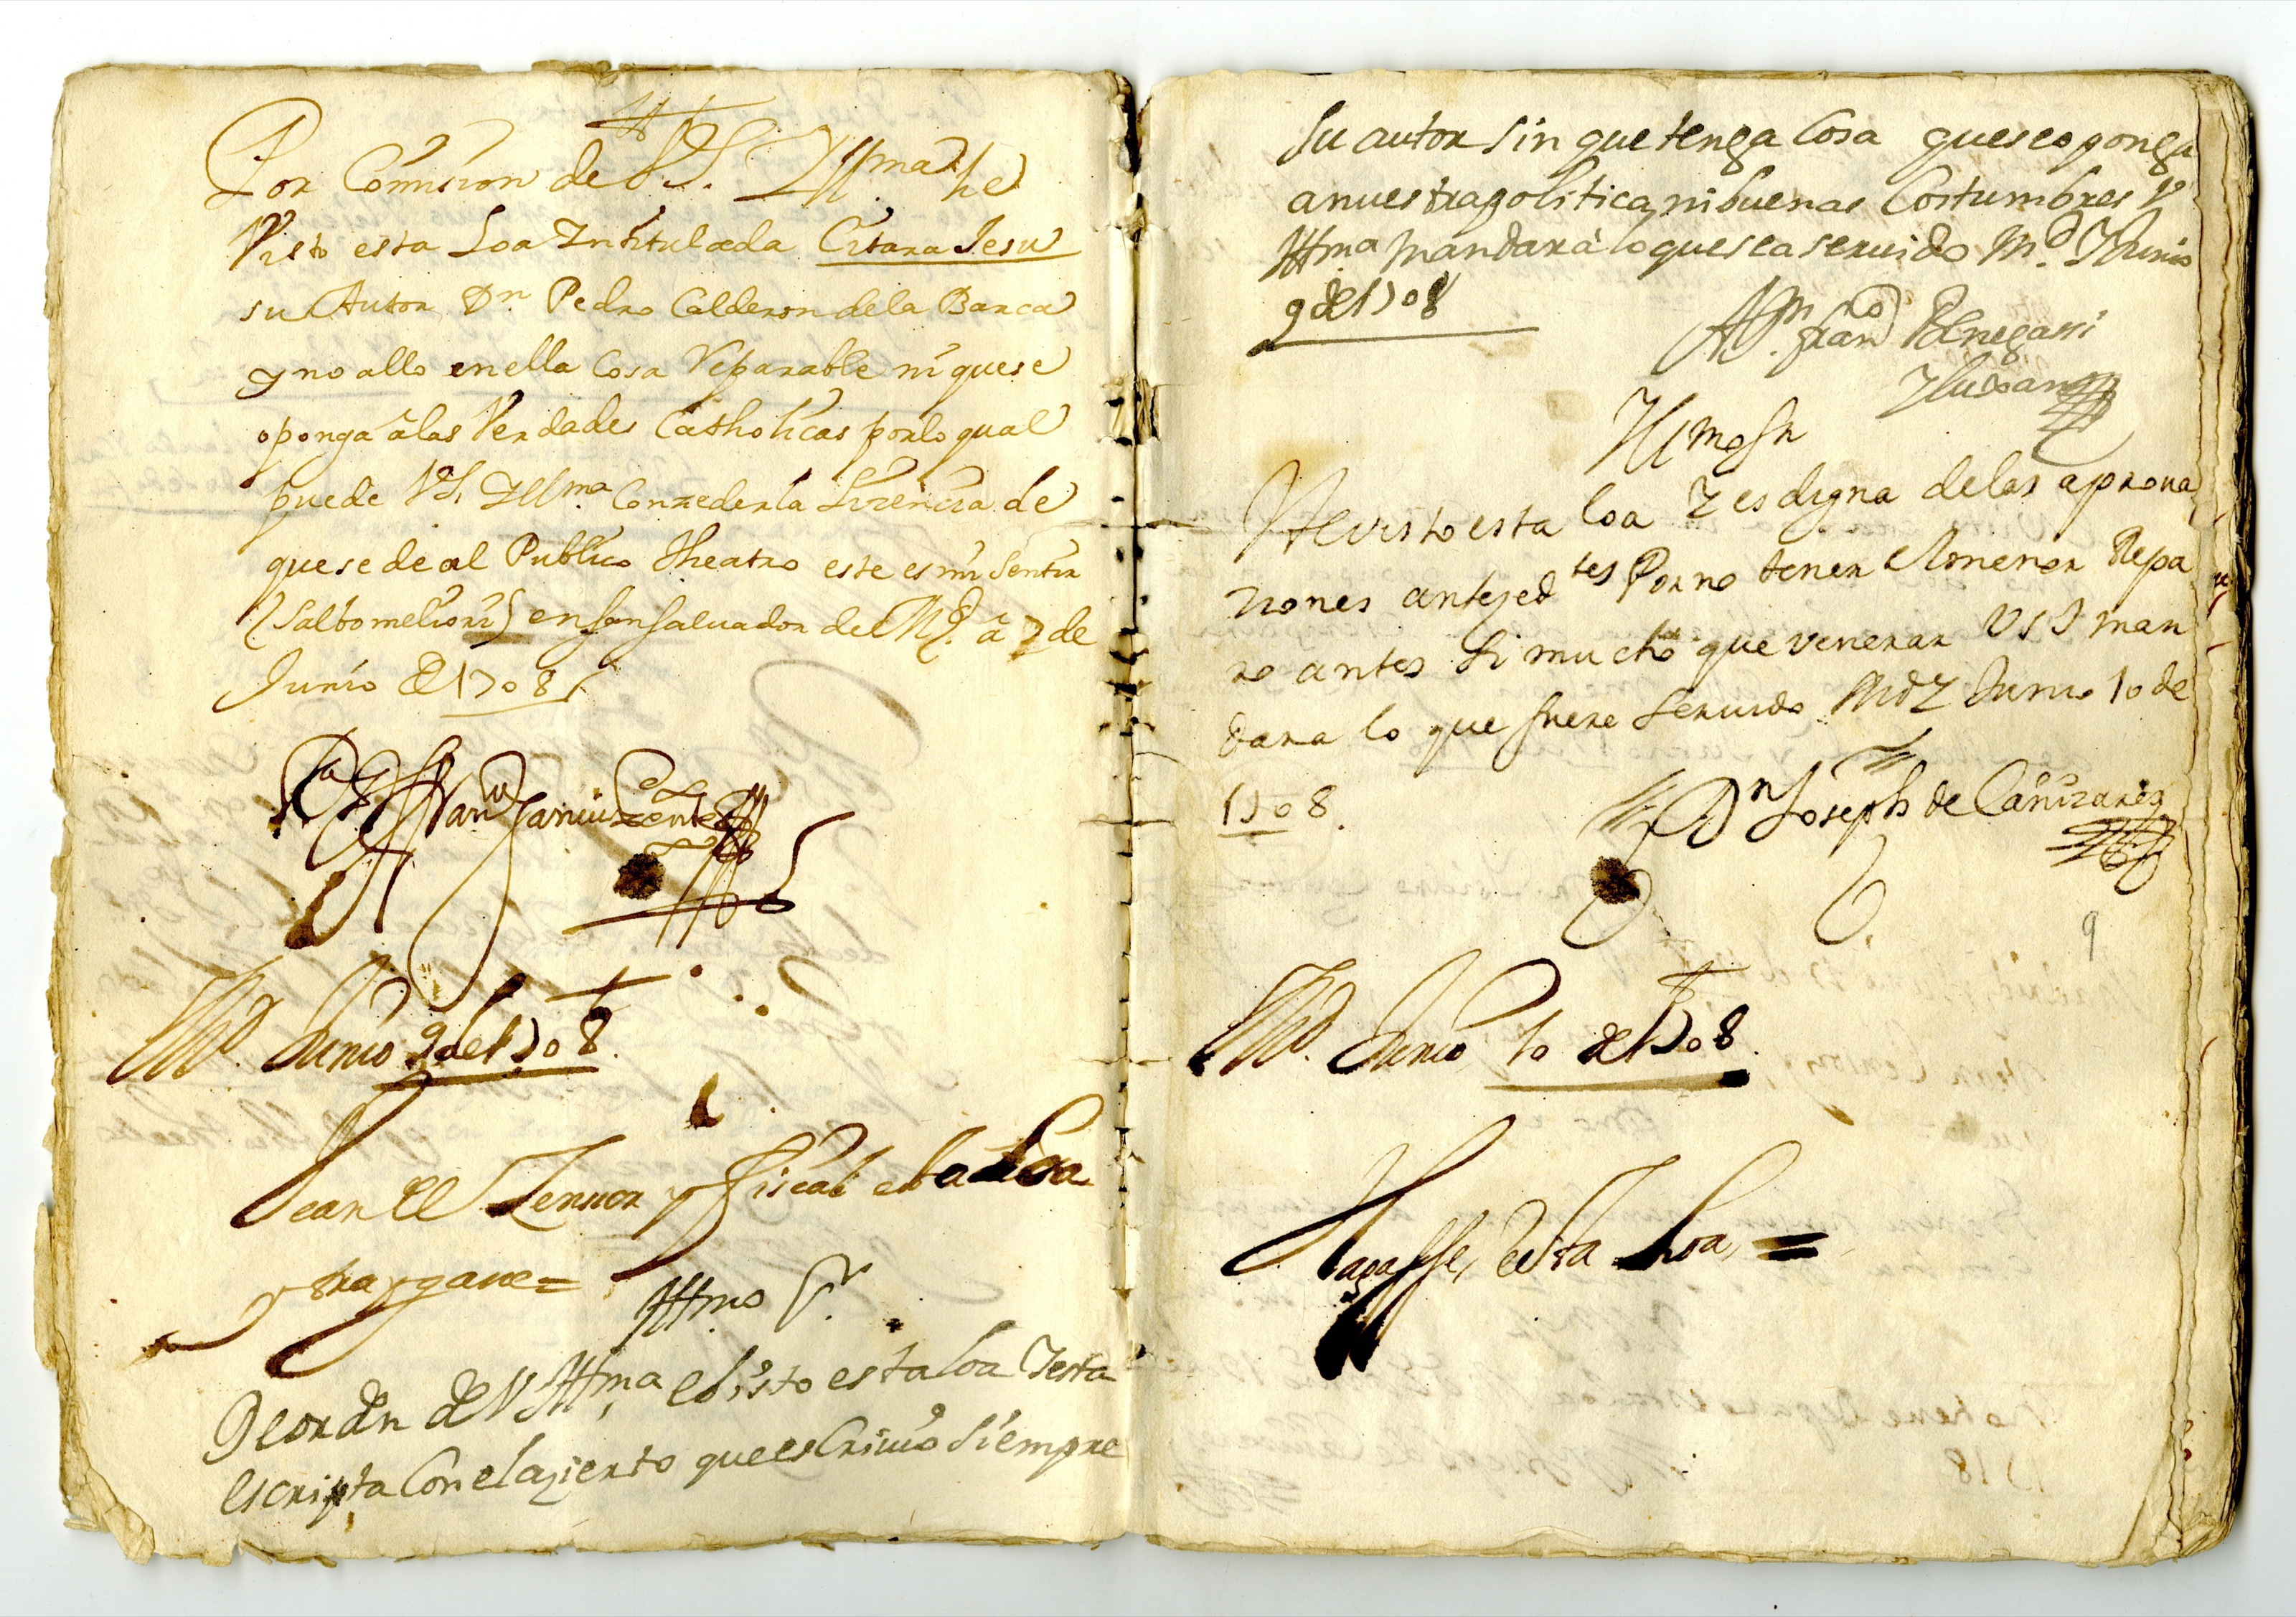 Por Comision de V.S. Yllma he
Visto esta Loa Yntitulada Citara Iesu
su Autor Dn Pedro Calderon dela Barca
y no allo en ella Cosa Reparable ni que se
oponga â las Verdades Catholicas por lo qual
puede VS. Yllma Conzeder la Lizencia de
que se de al Publico theatro este es mi Sentir
(Salbo meliori) en San Saluador de Md. â 7 de
Junio de 1708
Md. Junio 9 de 1708.
Vean el Zensor y fiscal esta Loa
y traygane=
Yllmo Sr.
De orden de V Yllma e bisto esta loa Y esta
escripta Con el azierto que escriuio Siempre
Su autor Sin que tenga Cosa que se oponga
a nuestra politica, ni buenas Costumbres V
Yllma Mandarà lo que sea seruido Md. Y Junio
9 de 1708
Yllmo Sr
He visto esta loa Y es digna de las aprova
ziones antezedtes Por no tener el menor Repa
ro antes Si mucho que venerar VSI man
dara lo que fuere Seruido Md Y Junio 10 de
1708.
Dn Joseph de Cañizares
9
Md. Junio 10 de 1708.
Hagasse, esta Loa, =